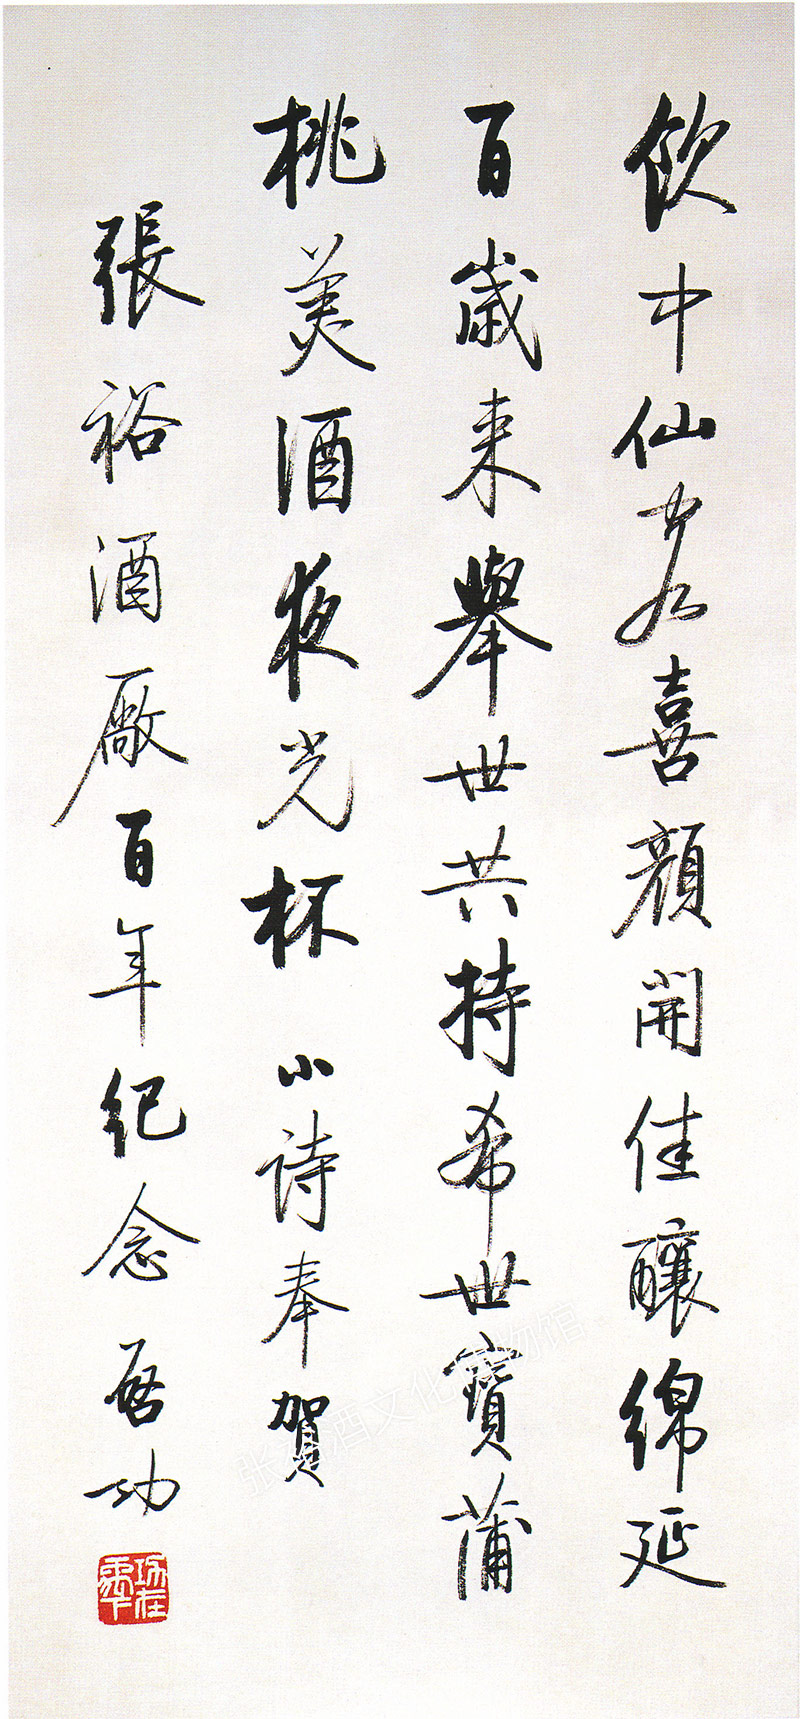 飲中仙喜顏開佳釀綿延
百歲来舉世共持希世寶蒲
桃美酒夜光杯 小詩奉賀
張裕酒廠百年紀念 启功
张裕酒文化博物馆